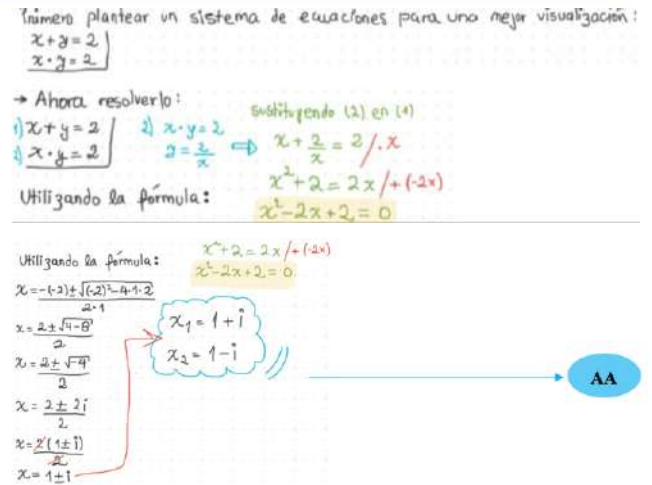 Primero plantear un sistema de ecuaciones para una mejor visualización:
x + y = 2
x · y = 2
→ Ahora resolverlo:
1) x + y = 2
2) x · y = 2
2) x · y = 2
y = 2/x ⇒
sustituyendo (2) en (1)
x + 2/x = 2 /·x
x² + 2 = 2x /+(-2x)
x² - 2x + 2 = 0
Utilizando la fórmula:
x² + 2 = 2x /+(-2x)
x² - 2x + 2 = 0
Utilizando la fórmula:
x = -(-2) ± √((-2)² - 4·1·2) / 2·1
x = 2 ± √(4-8) / 2
x = 2 ± √-4 / 2
x = 2 ± 2i / 2
x = 2(1 ± i) / 2
x = 1 ± i
x₁ = 1 + i
x₂ = 1 - i
AA